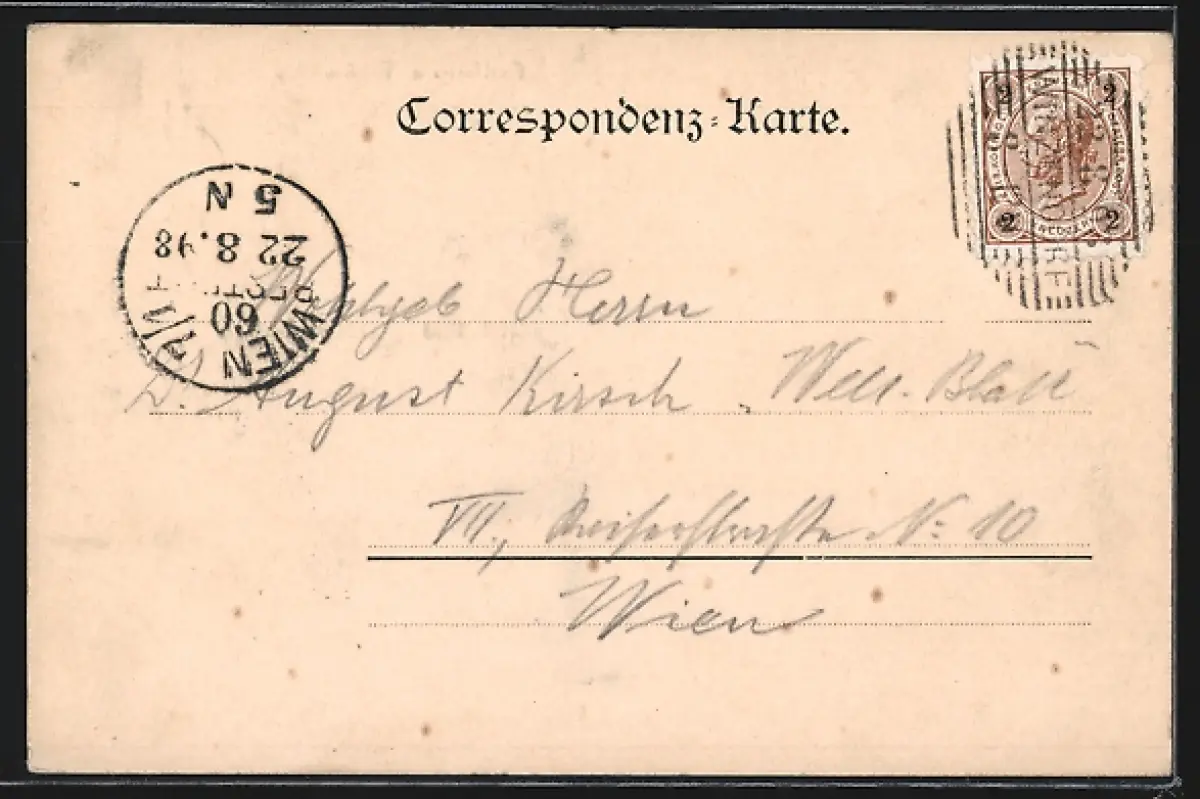 Correspondenz-Karte.
2 2
2 2
5 N
22.8.98
60
WIEN 7/1
Wohlgeb Herrn
Dr. August Kirsch
VII., Kaiserstrasse No: 10
Wien